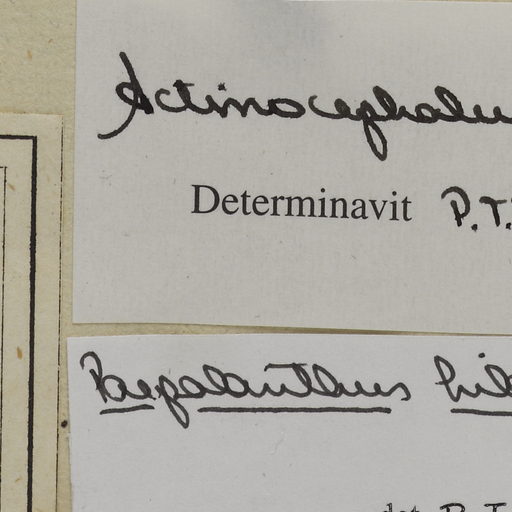 Actinocephalu
Determinavit P.T.
Paepalanthus hil
det P.T